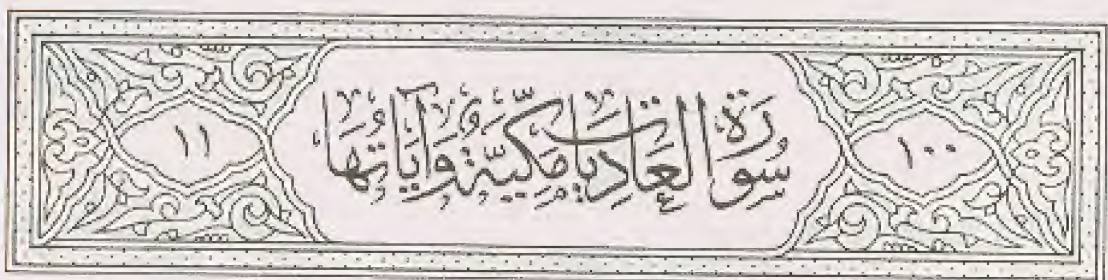 ١٠٠ سُورَةُ العَادِيَاتِ مَكِّيَّةٌ وَآيَاتُهَا ١١